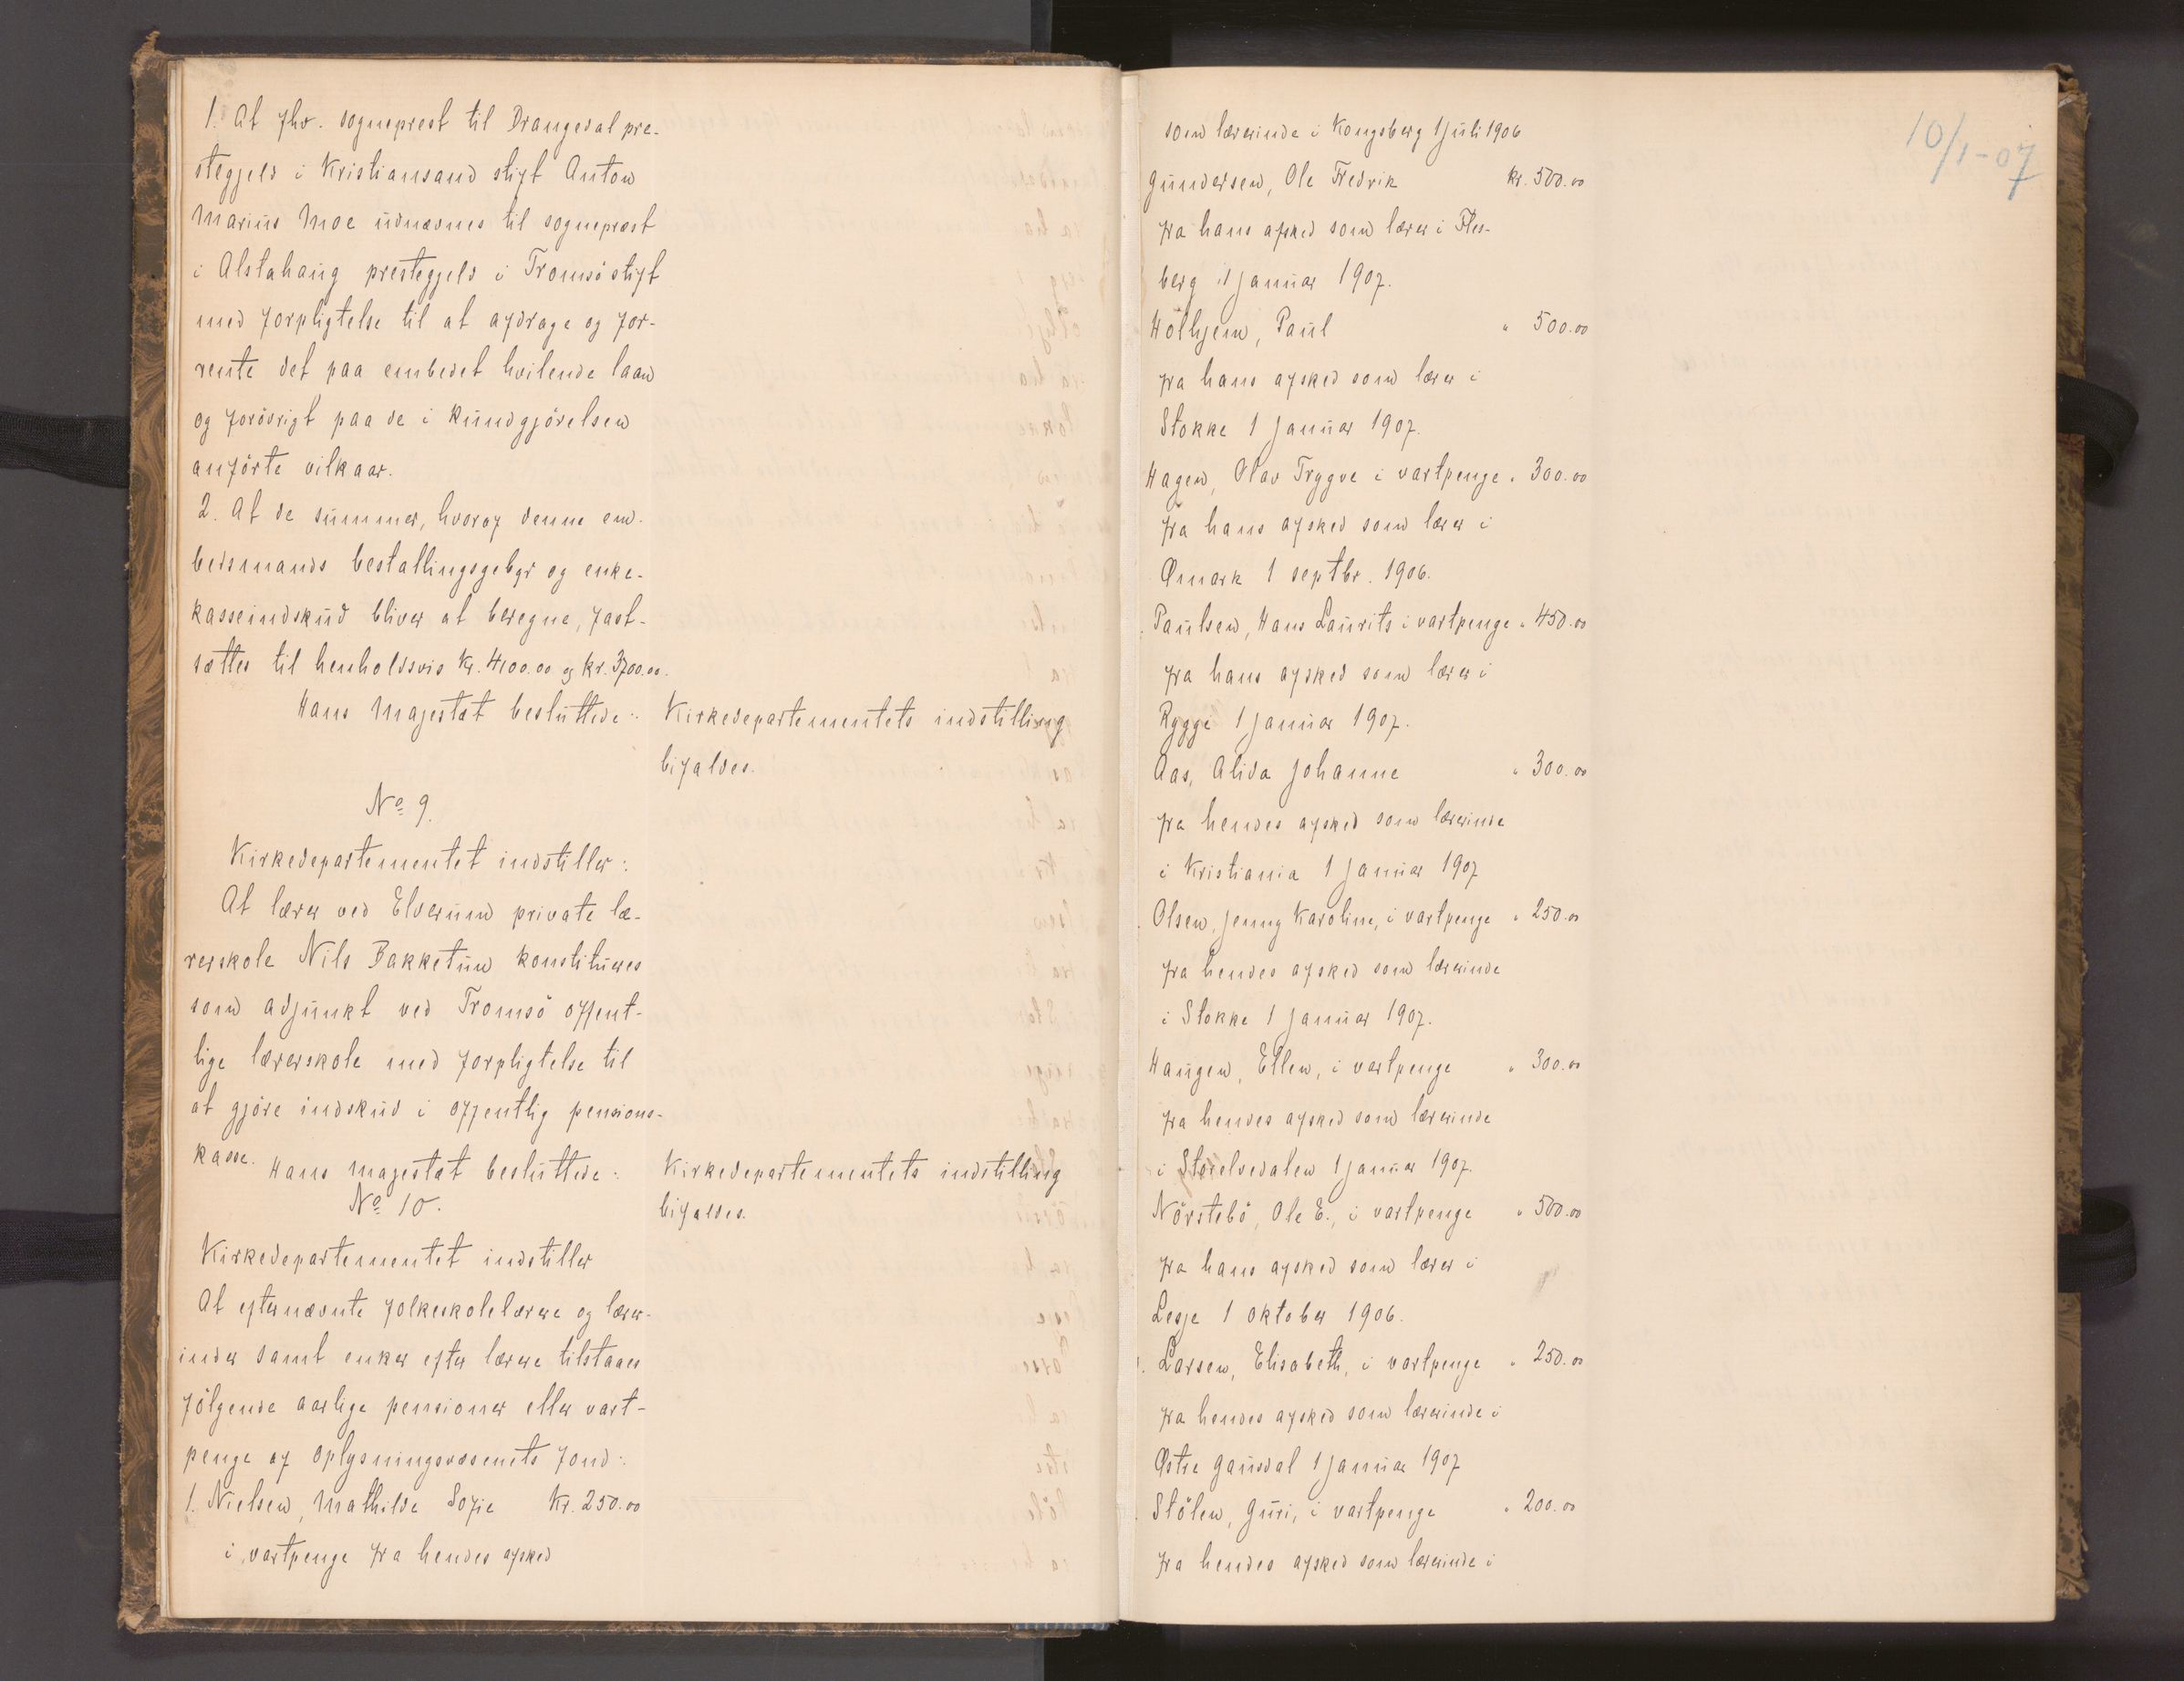 1. At fhv. sogneprest til Drangedal pre-
stegjeld i Kristiansand stift Anton
Marius Moe udnævnes til sogneprest
i Alstahaug prestegjeld i Tromsö stift
med forpligtelse til at afdrage og for-
rente det paa embedet hvilende laan
og forövrigt paa de i kundgjörelsen
anförte vilkaar.
2. At de summer, hvoraf denne em-
bedsmands bestallingsgebyr og enke-
kasseindskud bliver at beregne, fast-
sættes til henholdsvis kr. 4100.00 og kr. 3700.00.
Hans Majestæt besluttede: Kirkedepartementets indstilling
bifaldes.
No 9.
Kirkedepartementet indstiller:
At lærer ved Elverum private læ-
rerskole Nils Bakketun konstitueres
som adjunkt ved Tromsö offent-
lige lærerskole med forpligtelse til
at gjöre indskud i offentlig pensions-
kasse.
Hans Majestæt besluttede: Kirkedepartementets indstilling
bifaldes.
No 10.
Kirkedepartementet indstiller
At efternævnte folkeskolelærere og lærer-
inder samt enker efter lærere tilstaaes
fölgende aarlige pensioner eller vart-
penge af oplysningsvæsenets fond:
1. Nielsen, Mathilde Sofie Kr. 250.00
i vartpenge fra hendes afsked
10/1-07
som lærerinde i Kongsberg 1 juli 1906
Gundersen, Ole Fredrik kr. 500.00
fra hans afsked som lærer i Fles-
berg 1 januar 1907.
Holhjem, Paul " 500.00
fra hans afsked som lærer i
Stokke 1 januar 1907.
Hagen, Olav Trygve i vartpenge " 300.00
fra hans afsked som lærer i
Ømark 1 septbr. 1906.
Paulsen, Hans Laurits i vartpenge " 450.00
fra hans afsked som lærer i
Rygge 1 januar 1907.
Aas, Alida Johanne " 300.00
fra hendes afsked som lærerinde
i Kristiania 1 januar 1907
Olsen, Jenny Karoline, i vartpenge " 250.00
fra hendes afsked som lærerinde
i Stokke 1 januar 1907.
Haugen, Ellen, i vartpenge " 300.00
fra hendes afsked som lærerinde
i Storelvedalen 1 januar 1907.
Nörstebö, Ole E., i vartpenge " 500.00
fra hans afsked som lærer i
Lesje 1 oktober 1906.
Larsen, Elisabeth, i vartpenge " 250.00
fra hendes afsked som lærerinde i
Østre Gausdal 1 januar 1907
Stölen, Guri, i vartpenge " 200.00
fra hendes afsked som lærerinde i